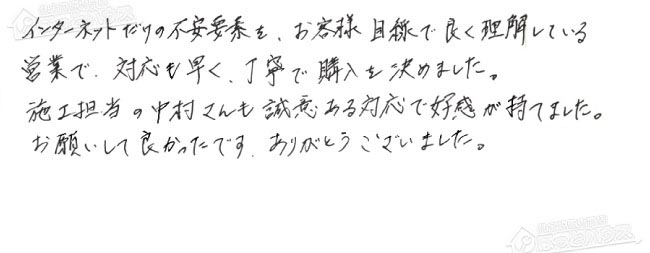 インターネットだけの不安要素を、お客様目線で良く理解している
営業で、対応も早く、丁寧で購入を決めました。
施工担当の中村さんも誠意ある対応で好感が持てました。
お願いして良かったです、ありがとうございました。